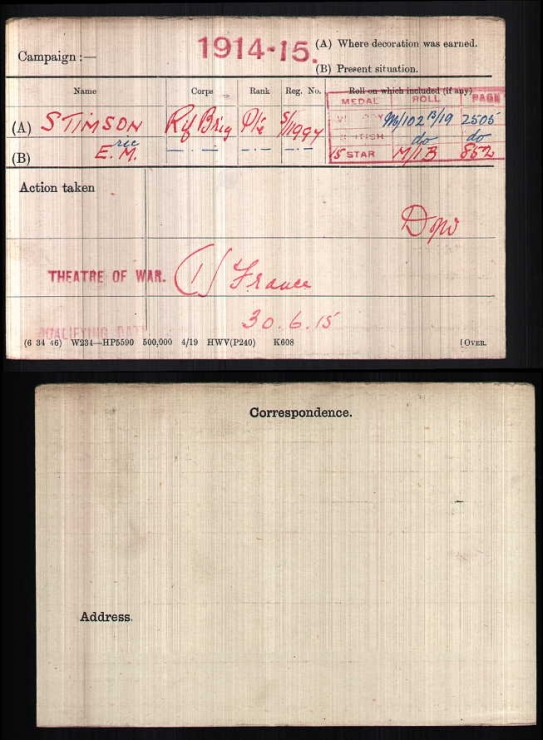 Campaign :— 1914-15.
(A) Where decoration was earned.
(B) Present situation.
Name Corps Rank Reg. No. Roll on which included (if any)
MEDAL ROLL PAGE
(A) STIMSON Rif Brig Pte S/11994 M/102B19 2505
BRITISH do do
(B) E. ric M. 15 STAR M/1B 852
Action taken
Dow
THEATRE OF WAR. (1) France
QUALIFYING DATE 30.6.15
(6 34 46) W234—HP5590 500,000 4/19 HWV(P240) K608 [OVER.
Correspondence.
Address.